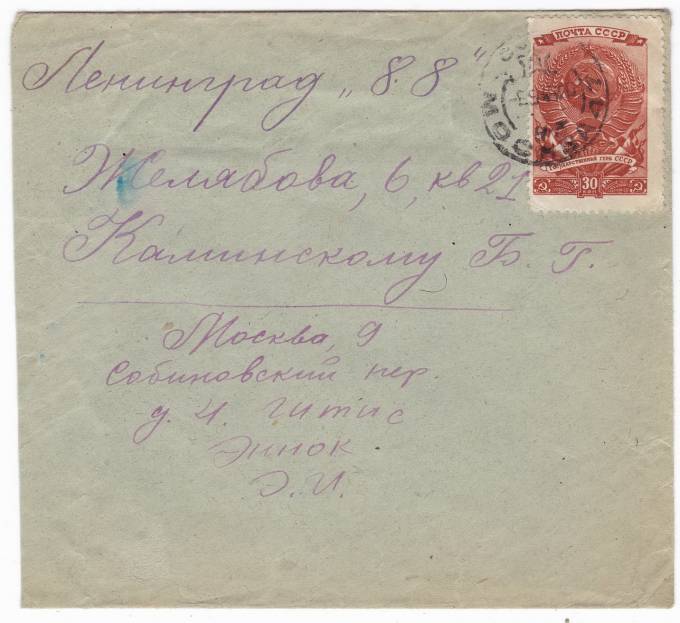 Ленинград „8.8"
Желябова, 6, кв 21
Каминскому Б. Г.
Москва, 9
Собиновский пер.
д. 4. Гитис
Эннок
Э.И.
ПОЧТА СССР
ГОСУДАРСТВЕННЫЙ ГЕРБ СССР
30
МОСКВА